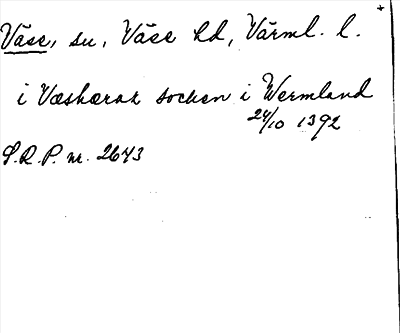 Väse, sn, Väse hd, Värml. l. +
i Væshærak socken i Wermland
24/10 1392
S.R.P. nr. 2643